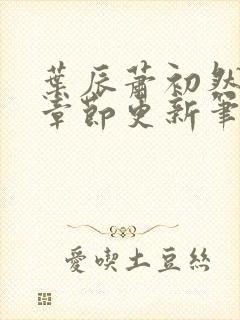 葉辰蕭初然
章節更新筆
愛喫土豆絲